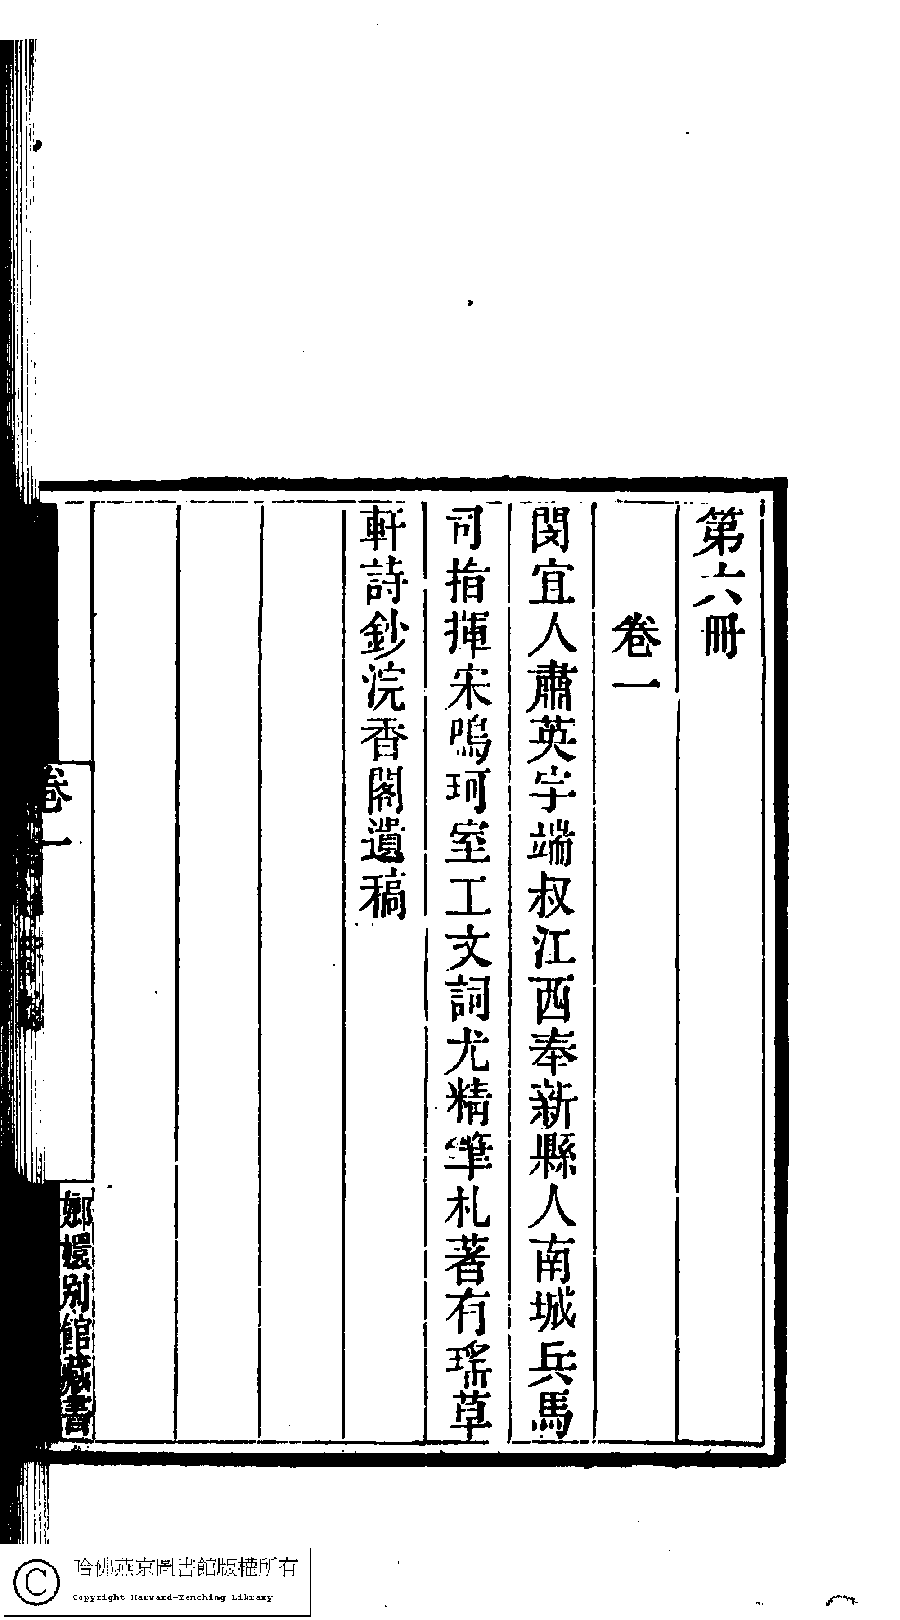 第六冊
卷一
閔宜人肅英字端叔江西奉新縣人南城兵馬
司指揮宋鳴珂室工文詞尤精筆札著有瑞草
軒詩鈔浣香閣遺稿
卷一
嫏嬛別館藏書
哈佛燕京圖書館版權所有
Copyright Harvard-Yenching Library